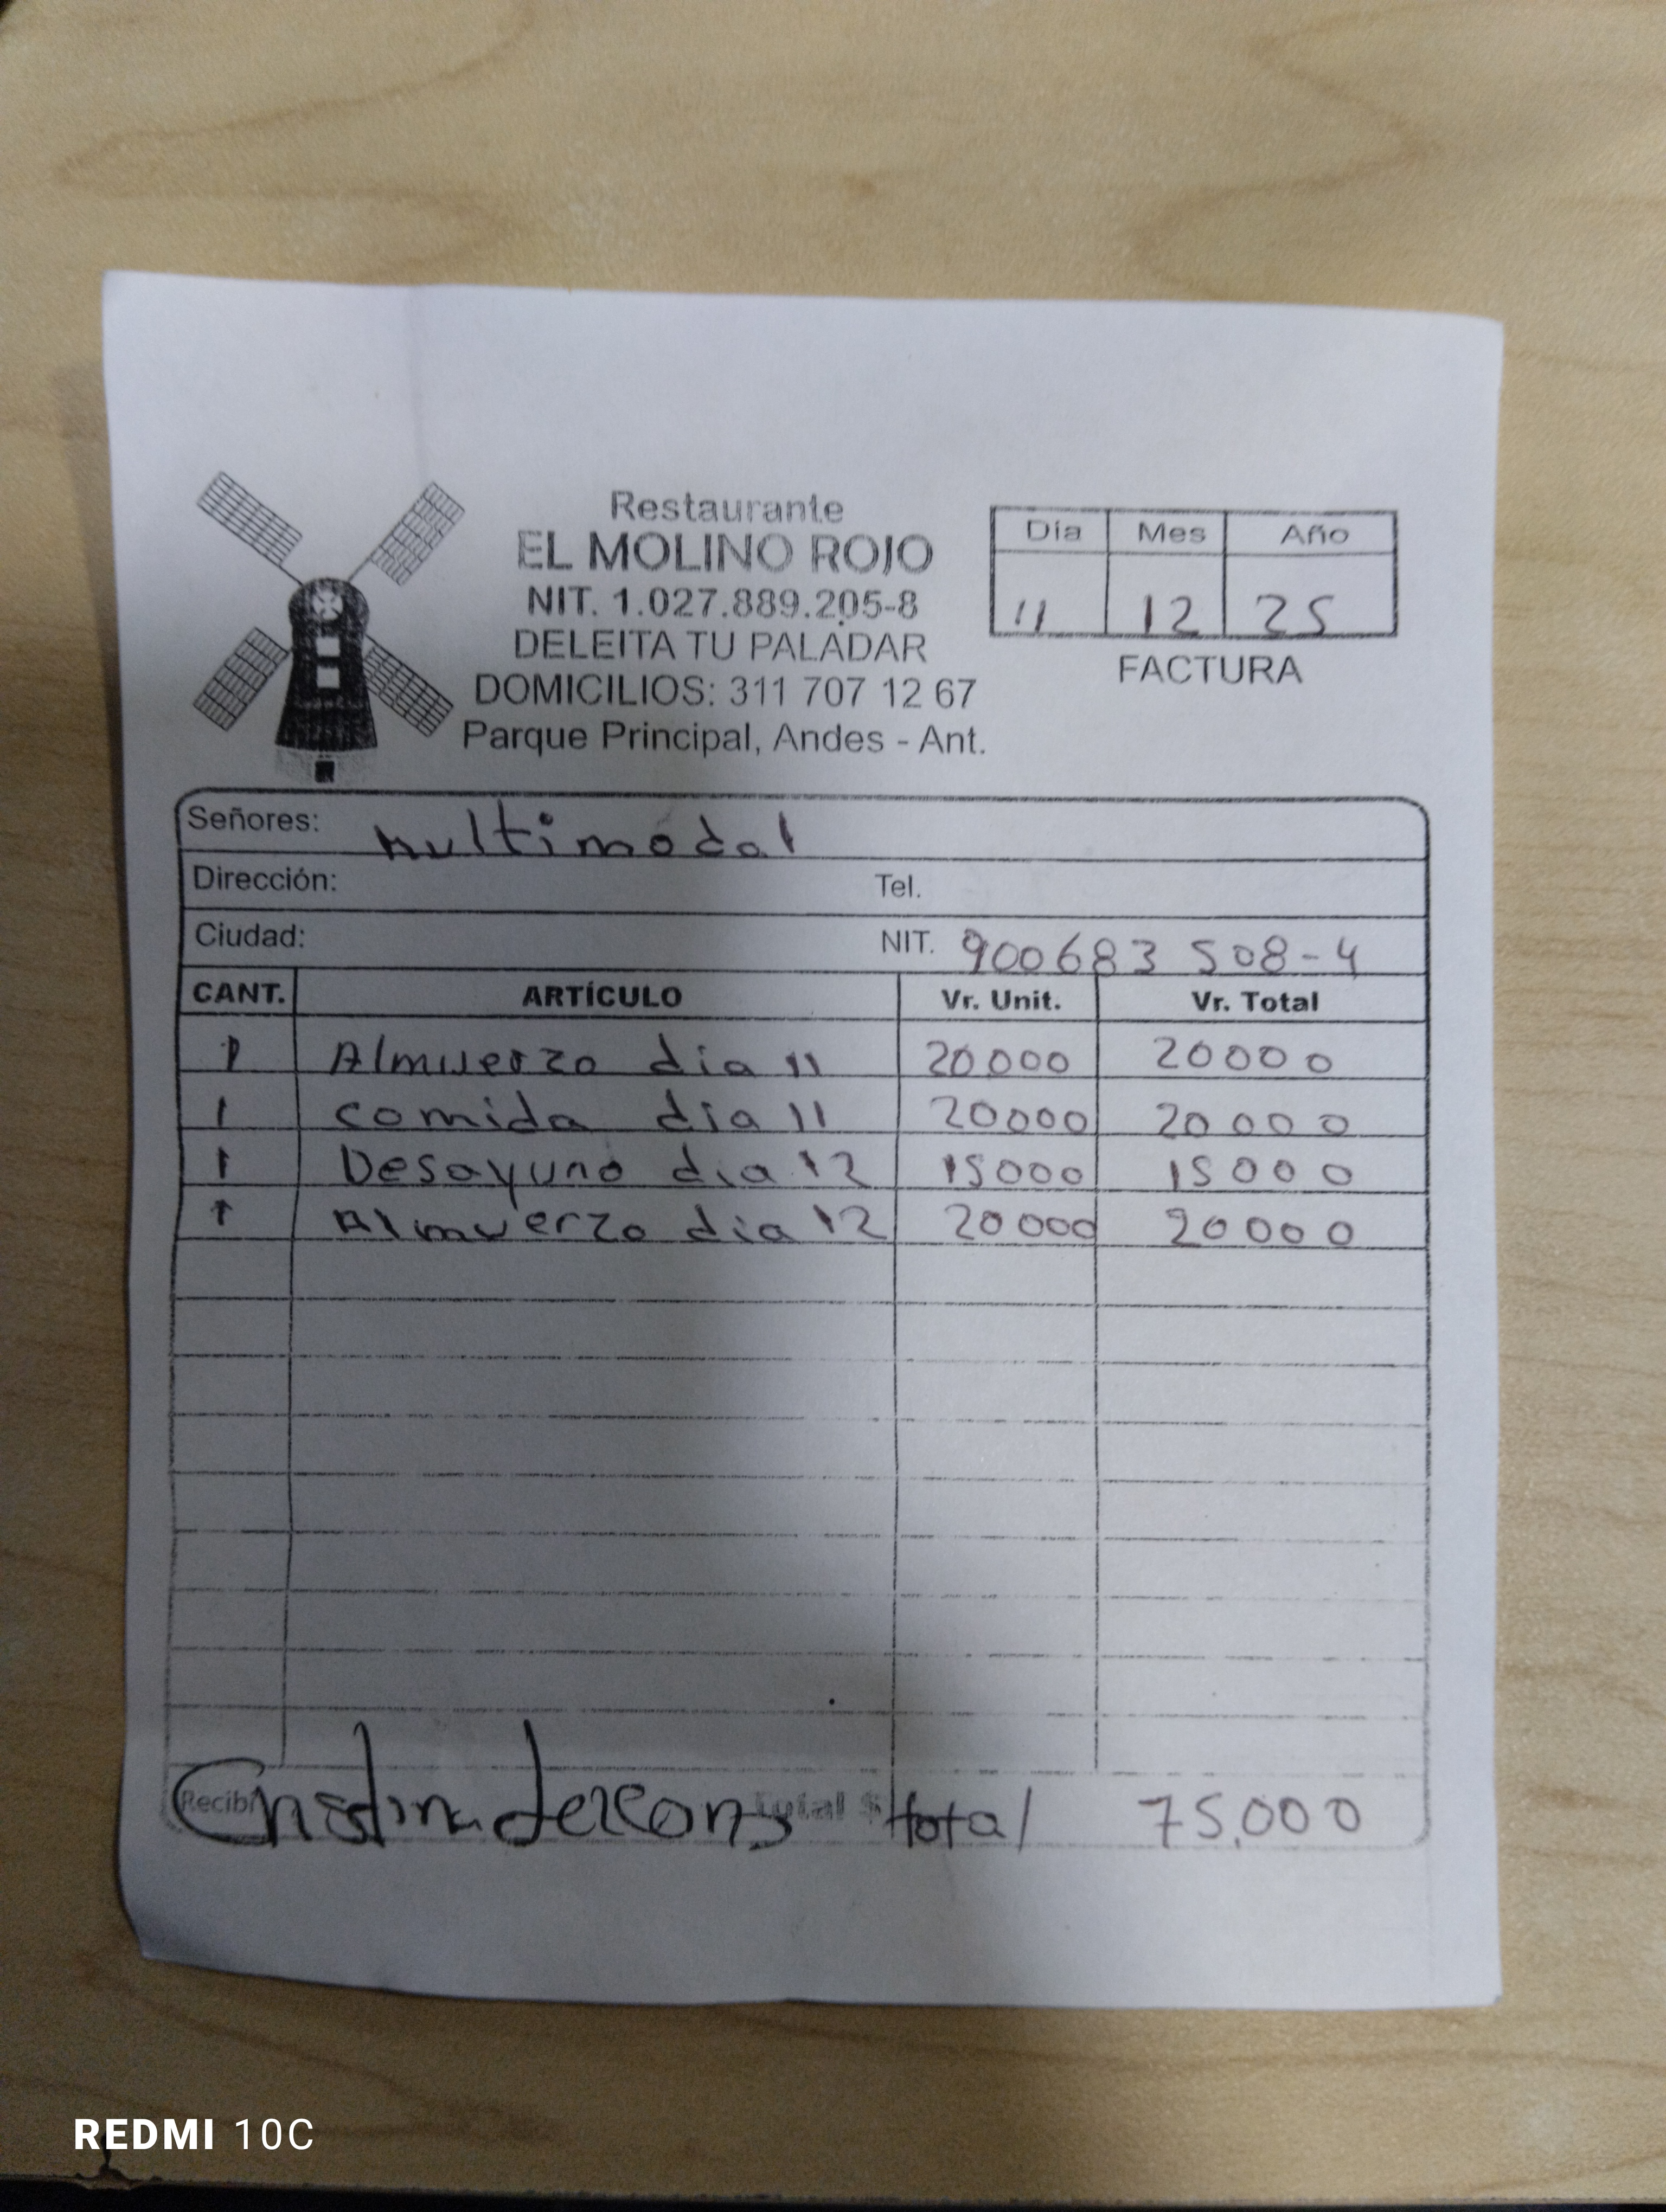 Restaurante
EL MOLINO ROJO
NIT. 1.027.889.205-8
DELEITA TU PALADAR
DOMICILIOS: 311 707 12 67
Parque Principal, Andes - Ant.
Día Mes Año
11 12 25
FACTURA
Señores: Multimodal
Dirección: Tel.
Ciudad: NIT. 900683 508-4
CANT. ARTÍCULO Vr. Unit. Vr. Total
1 Almuerzo dia 11 20000 20000
1 comida dia 11 20000 20000
1 Desayuno dia 12 15000 15000
1 Almuerzo dia 12 20000 20000
Recibí Total $ total 75.000
REDMI 10C